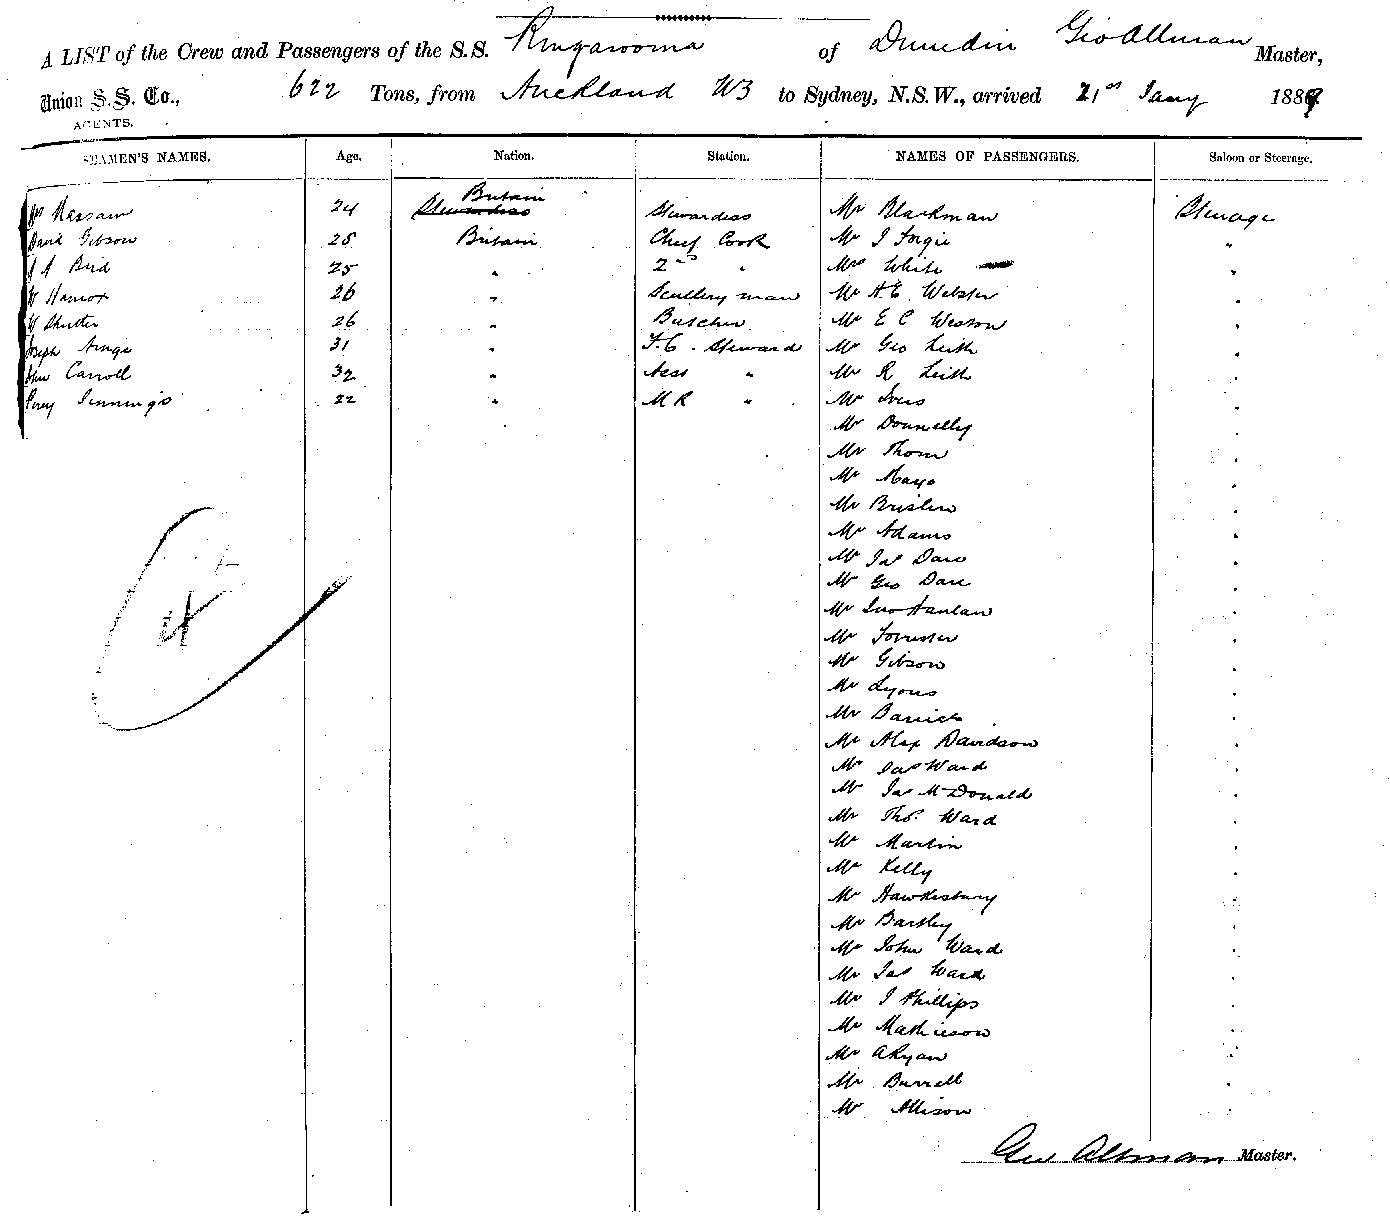 A LIST of the Crew and Passengers of the S.S. Ringarooma of Dunedin Geo Allman Master,
Union S. S. Co., 622 Tons, from Auckland to Sydney, N.S.W., arrived 21st Jany 1889
AGENTS.
SEAMEN'S NAMES. Age. Nation. Station. NAMES OF PASSENGERS. Saloon or Steerage.
24 Britain Stewardess Stewardess Mr Blackman Steerage
David Gibson 25 Britain Chief Cook Mr J Forgie "
Bird 25 " 2nd " Mrs White "
26 " Scullery man Mr H. E. Webster "
W Shutter 26 " Butcher Mr E C Weston "
Joseph 31 " F.C. Steward Mr Geo Leith "
John Carroll 32 " Asst " Mr R Leith "
Percy Jennings 22 " M R " Mr Ivers "
Mr Donnelly "
Mr Thom "
Mr Mayo "
Mr Brislin "
Mr Adams "
Mr Jas Dare "
Mr Geo Dare "
Mr Jno Hanlan "
Mr Forrester "
Mr Gibson "
Mr Lyons "
Mr "
Mr Alex Davidson "
Mr Jas Ward "
Mr Jas McDonald "
Mr Thos. Ward "
Mr Martin "
Mr Kelly "
Mr Hawkesbury "
Mr Bartley "
Mr John Ward "
Mr Jas Ward "
Mr J Phillips "
Mr Mathieson "
Mr A Ryan "
Mr Burrell "
Mr Allison "
Geo Allman Master.